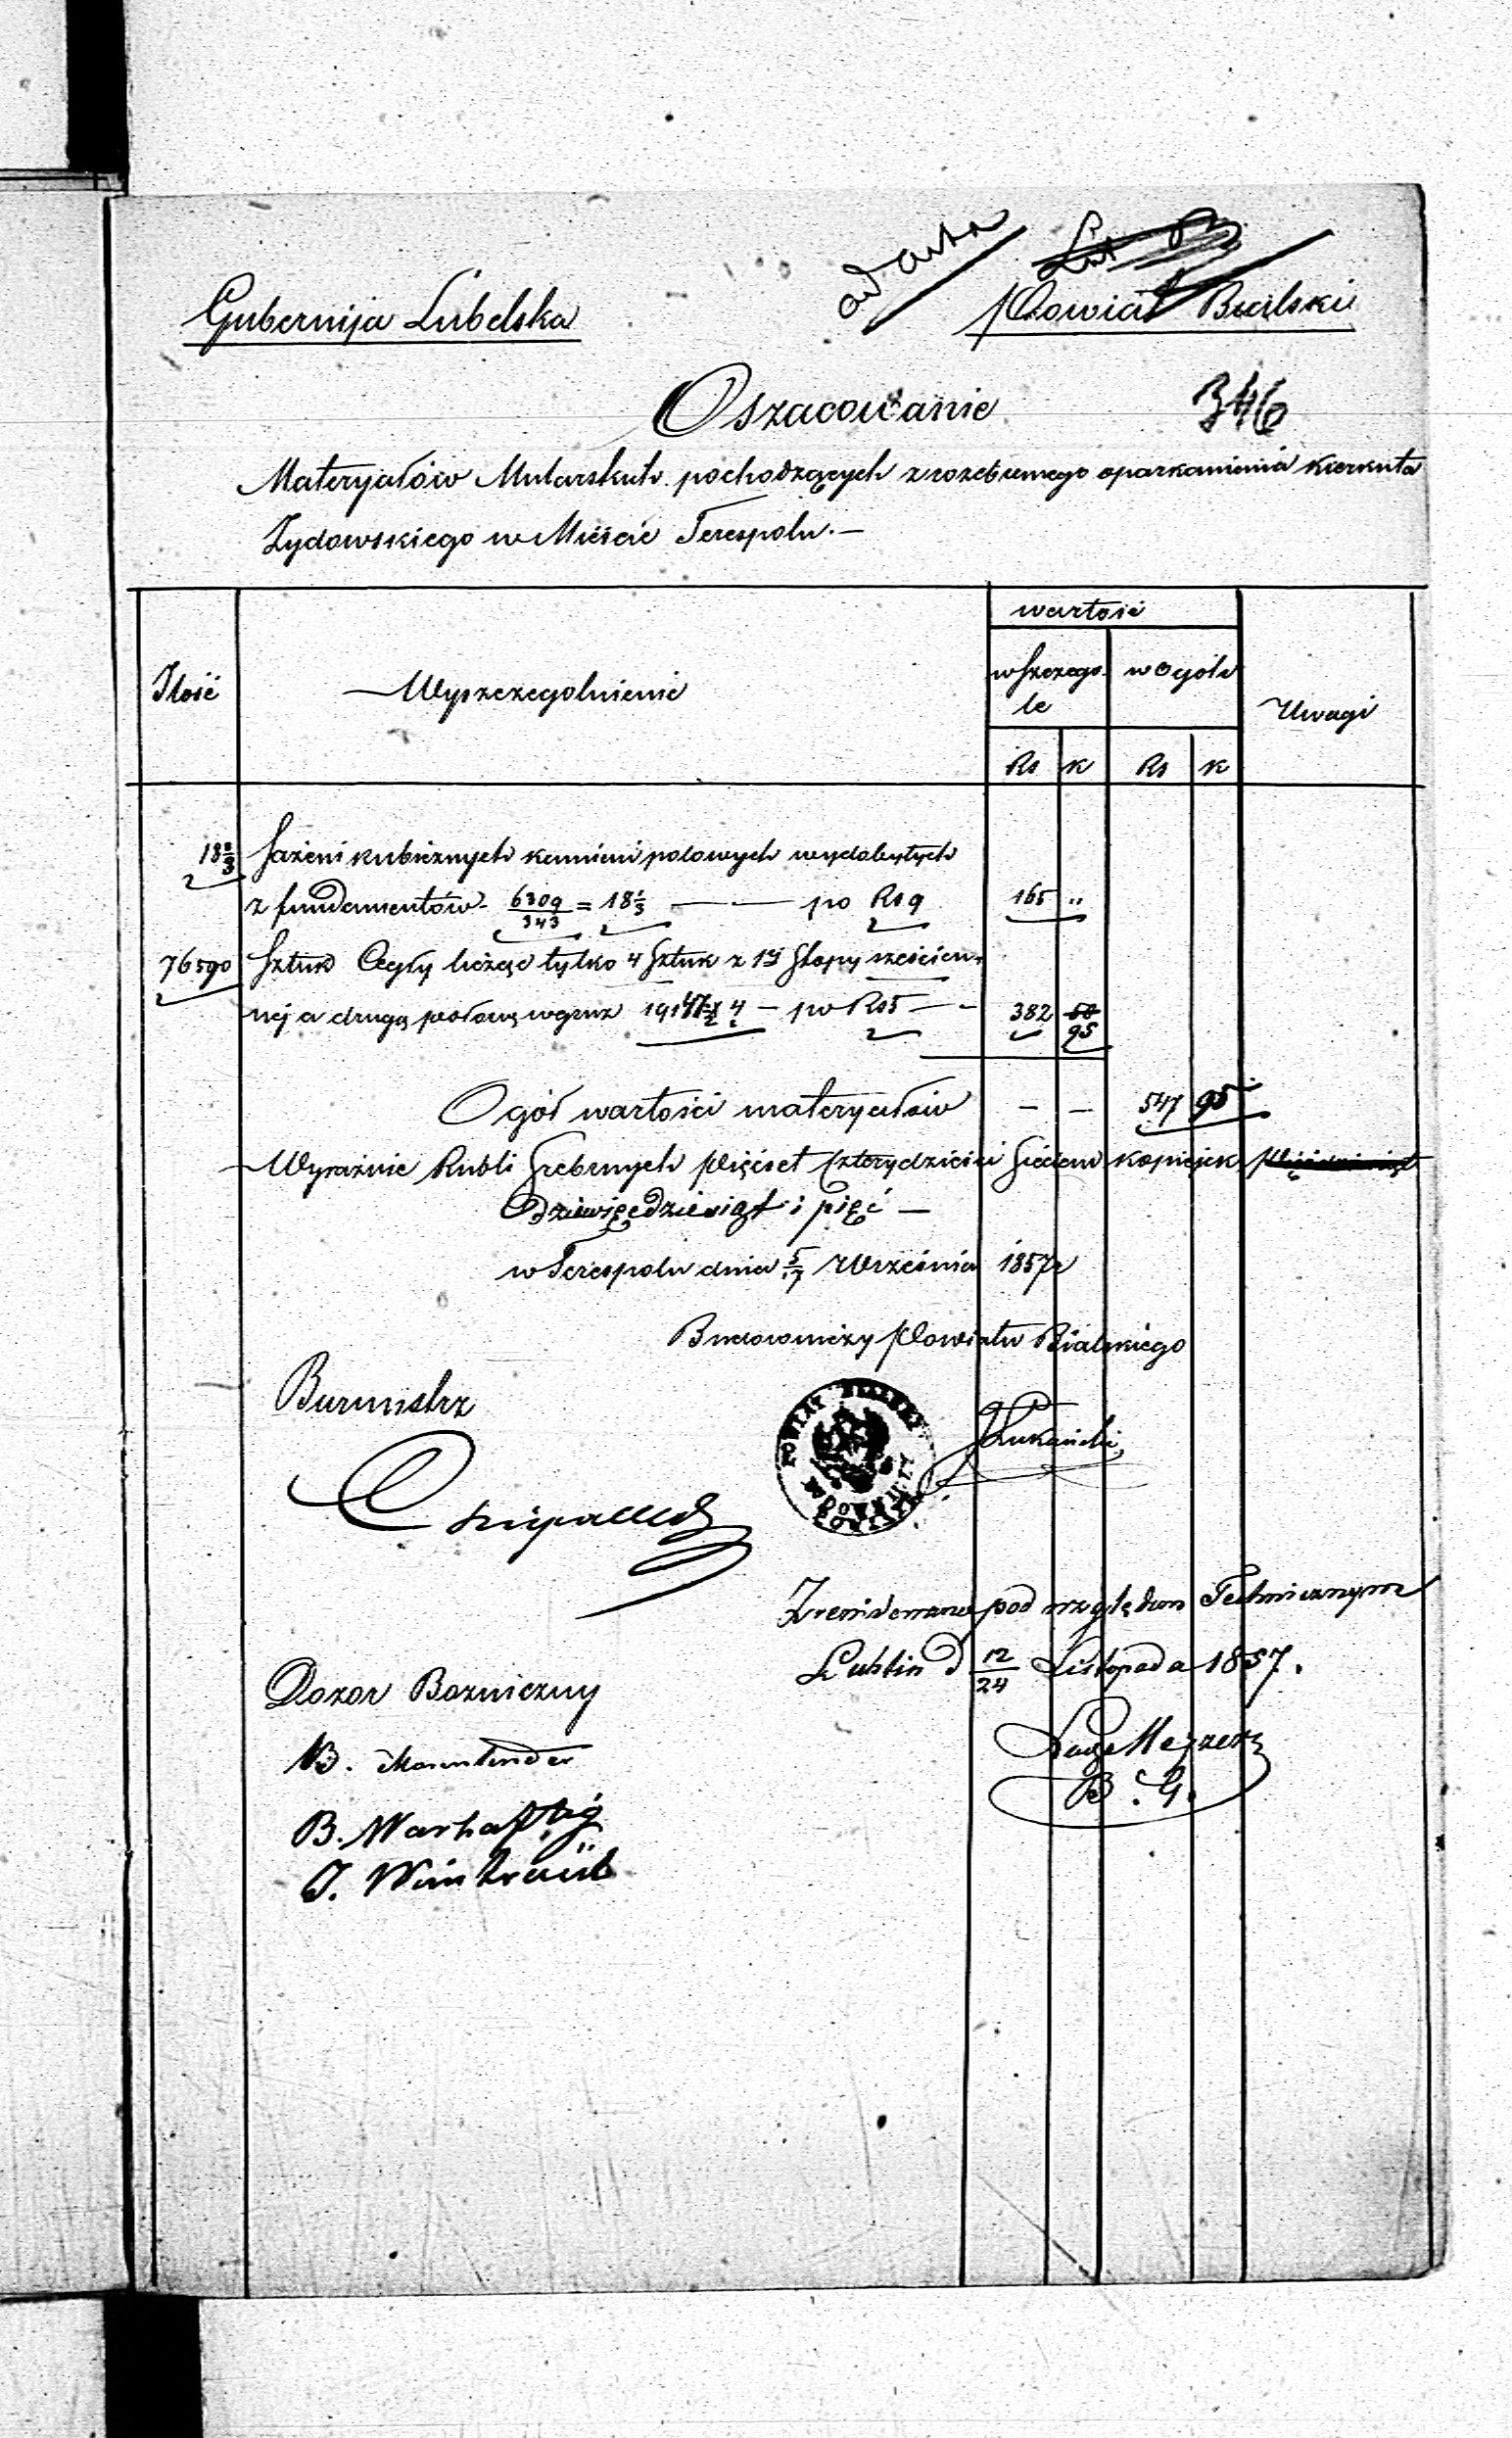 ad acta
Gubernija Lubelska
Powiat Bialski
346
Oszacowanie
Materyałów Mularskich pochodzących z rozebranego oparkanienia Kierkuta
Żydowskiego w Mieście Terespolu. —
Ilość
Wyszczegolnienie
wartość
w Szczego-
le
w Ogóle
Uwagi
Rs K Rs K
18 1/3 Sażeni kubicznych kamieni polowych wydobytych
z fundamentów 6309/343 = 18 1/3 — — po Rs 9 165 "
76590 Sztuk Cegły licząc tylko 4 Sztuk z 1éj Stopy sześcien-
nej a drugą połowę w gruz 4 — po Rs 5 — - 382 50
95
Ogół wartości materyałów — — 547 95
Wyraźnie Rubli Srebrnych Pięćset Czterydzieści Siedem kopiejek Pięćdziesiąt
Dziewięćdziesiąt i pięć —
w Terespolu dnia 5/17 Września 1857 r
Budowniczy Powiatu Bialskiego
Burmistrz
POWIAT BIALSKI
Zrewidowano pod względem Technicznym
Lublin d 12/24 Listopada 1857.
Dozor Bozniczny
B. G.
B. Warhaftig
J. Wintraüb